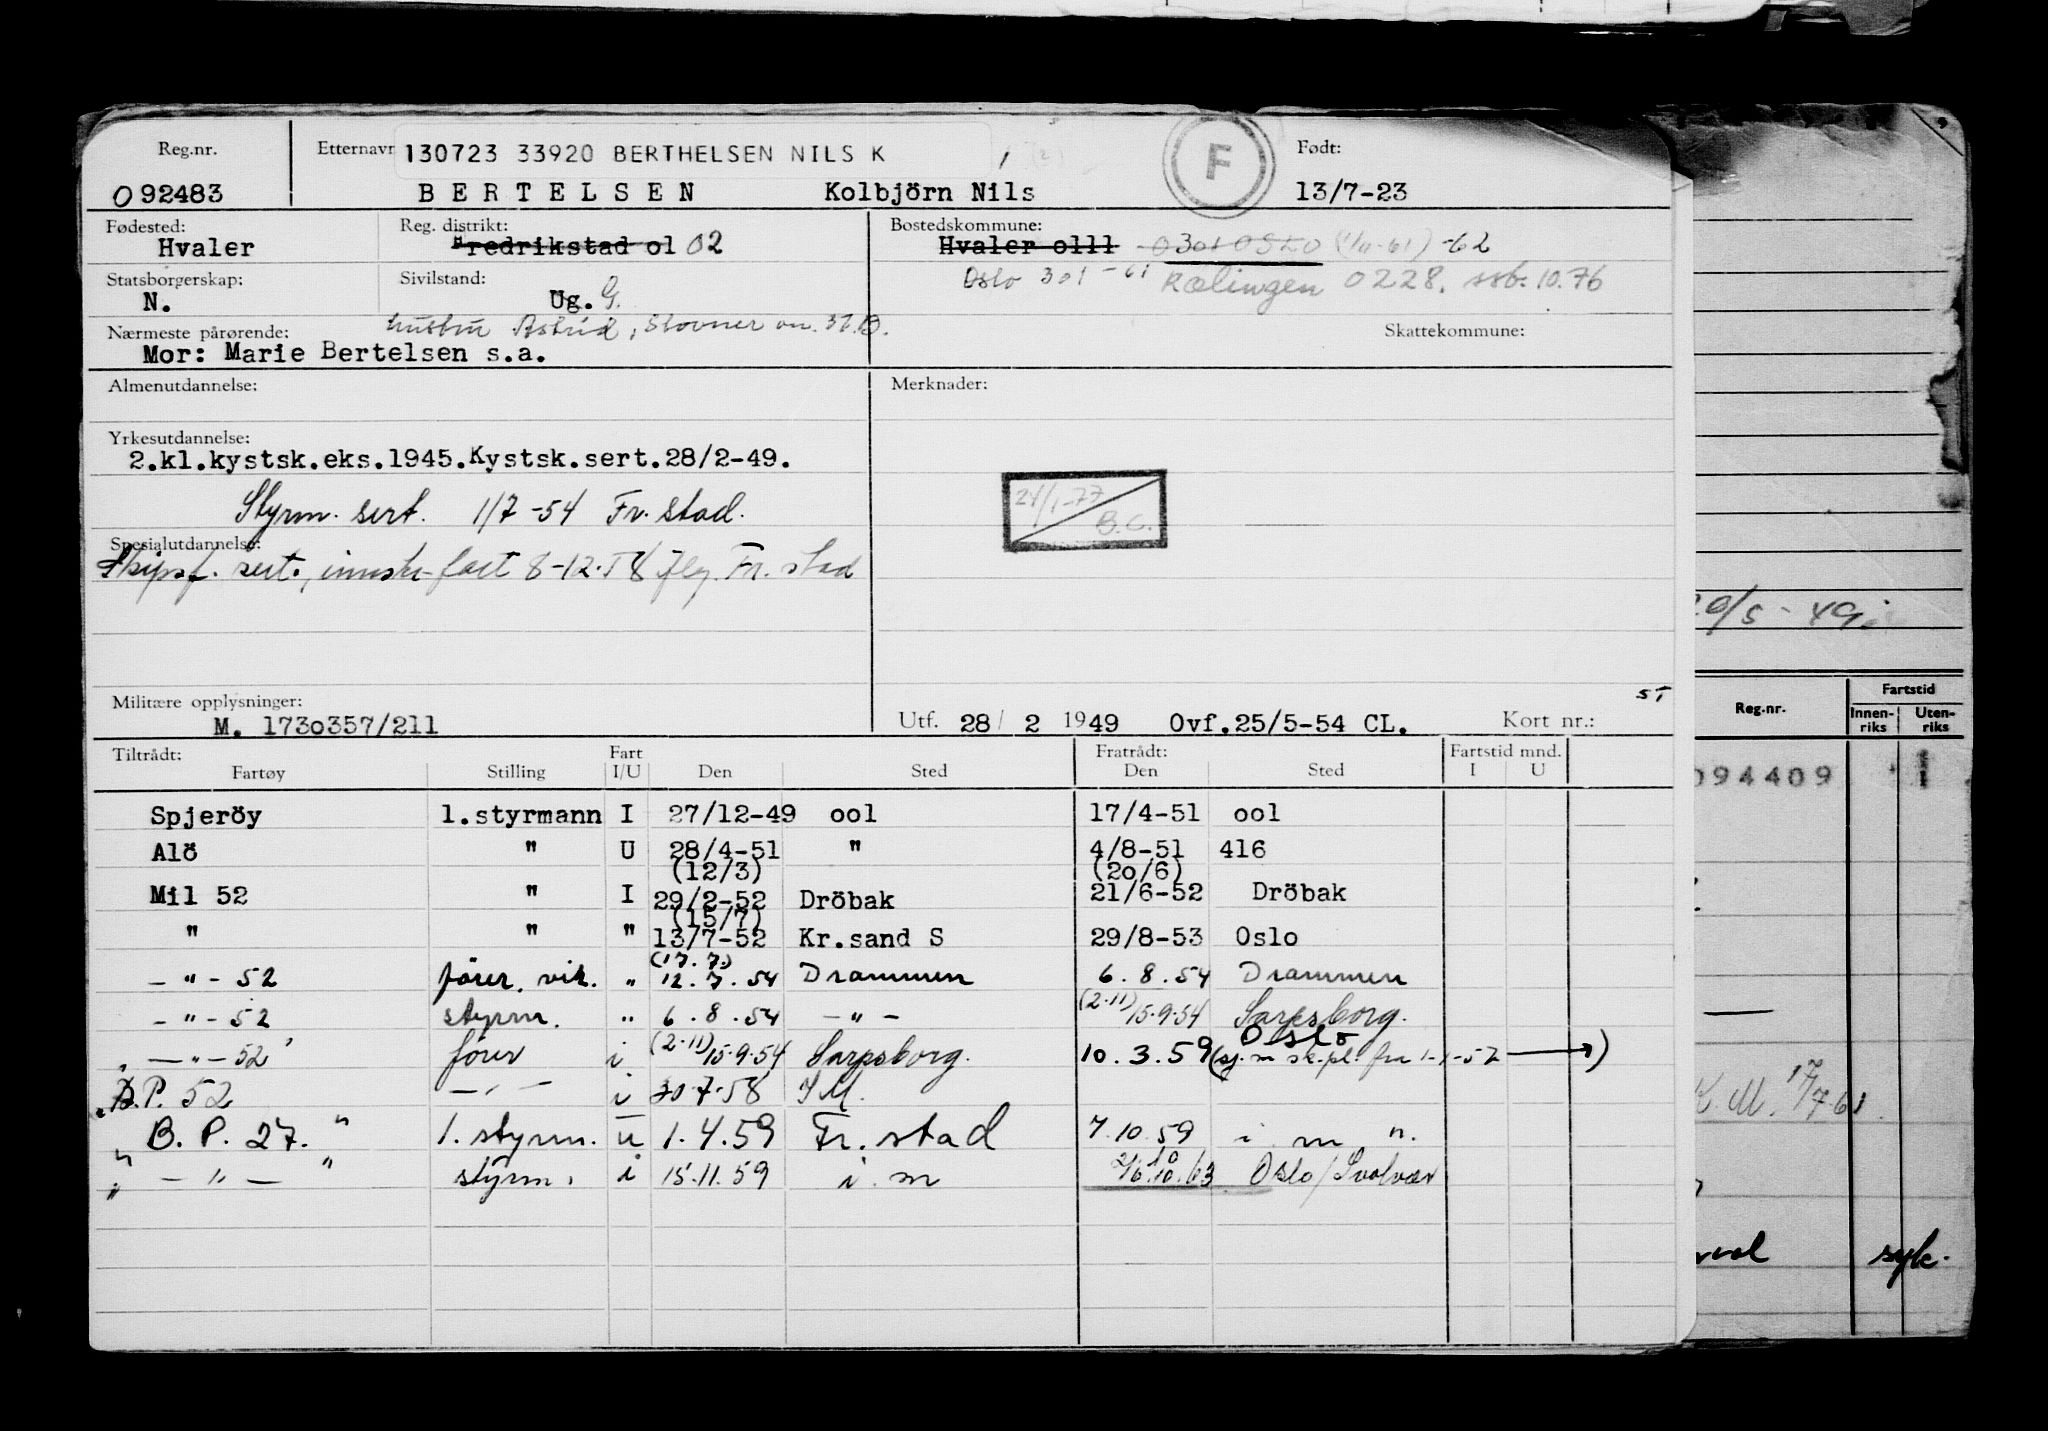 Reg.nr. Etternavn 130723 33920 BERTHELSEN NILS K F Født:
092483 BERTELSEN Kolbjörn Nils 13/7-23
Fødested: Reg. distrikt: Bostedskommune:
Hvaler Fredrikstad ol 02 Hvaler olll 0301 OSLO (1/11-61) -62
Statsborgerskap: Sivilstand: Oslo 301 -61 Rælingen 0228. ssb. 10.76
N. Ug. G.
Nærmeste pårørende: hustru Astrid, Stovner vn. 37.B. Skattekommune:
Mor: Marie Bertelsen s.a.
Almenutdannelse: Merknader:
Yrkesutdannelse:
2.kl.kystsk.eks.1945.Kystsk.sert.28/2-49.
Styrm. sert. 1/7-54 Fr. stad. 24/1-77 B.C.
Spesialutdannelse:
Skipsf. sert., innskr. fart 8-12-58 Fr. stad
Militære opplysninger: 5T
M. 1730357/211 Utf. 28/ 2 1949 Ovf.25/5-54 CL. Kort nr.:
Tiltrådt: Fart Fratrådt: Fartstid mnd.
Fartøy Stilling I/U Den Sted Den Sted I U
Spjeröy 1.styrmann I 27/12-49 ool 17/4-51 ool
Alö " U 28/4-51 " 4/8-51 416
(12/3) (20/6)
Mil 52 " I 29/2-52 Dröbak 21/6-52 Dröbak
(15/7)
" " " 13/7-52 Kr.sand S 29/8-53 Oslo
(17.7.)
- " - 52 förer. vik. " 12.7.54 Drammen 6.8.54 Drammen
- " - 52 styrm. " 6.8.54 - " - (2.11) 15.9.54 Sarpsborg.
- " - 52 förer i (2.11) 15.9.54 Sarpsborg. 10.3.59 Oslo (sj.m sk.pl. fra 1-1-57 →)
B.P. 52 - " - i 30.7.58 I M.
" B.P. 27. " 1. styrm. u 1.4.59 Fr. stad 7.10.59 i m n.
" - " - " styrm. i 15.11.59 i. m 26.10.63 Oslo/Svolvær
20/5-49
Reg.nr. Fartstid
Innen-riks Uten-riks
094409 1
K.M. 17/7.61
syk.